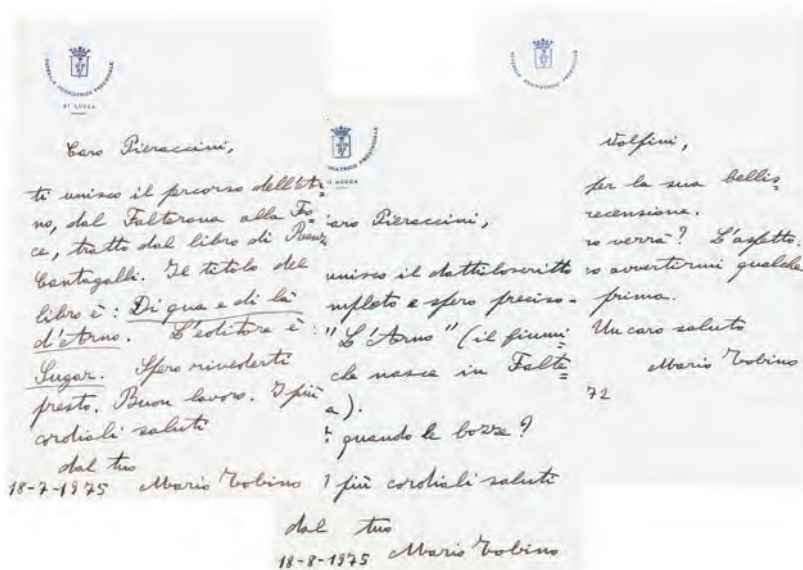 DI LUCCA
Caro Pieraccini,
ti unisco il percorso dell'Ar=
no, dal Falterona alla Fo=
ce, tratto dal libro di Renzo
Cantagalli. Il titolo del
libro è: Di qua e di là
d'Arno. L'editore è:
Sugar. Spero rivederti
presto. Buon lavoro. I più
cordiali saluti
dal tuo
18-7-1975 Mario Tobino
DI LUCCA
aro Pieraccini,
unisco il dattiloscritto
mpleto e spero preciso-
"L'Arno" (il fiume
che nasce in Falte=
a).
quando le bozze?
I più cordiali saluti
dal tuo
18-8-1975 Mario Tobino
Volpini,
per la sua bellis=
recensione.
o verrà? L'aspetto.
o avvertirmi qualche
prima.
Un caro saluto
Mario Tobino
72